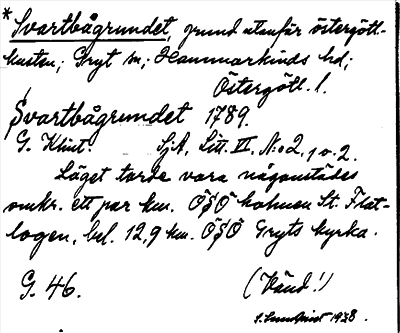 * Svartbågrundet, grund utanför östergötl.-
kusten; Gryt sn; Hammarkinds hd;
Östergötl. l.
Svartbågrundet 1789.
G. Klint. SjA, Litt. VI. No 2, 1 o. 2.
Läget torde vara någonstädes
omkr. ett par km. ÖSÖ holmen St. Flat-
logen, bel. 12,9 km. ÖSÖ Gryts kyrka.
G. 46. (Vänd!)
1938.